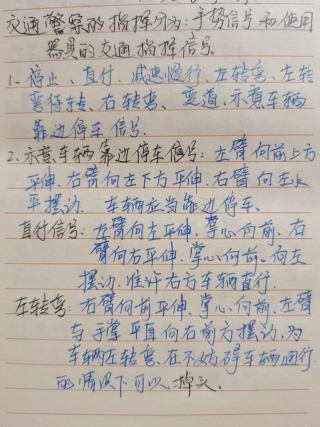 交通警察的指挥分为：手势信号和使用
器具的交通指挥信号.
1.停止、直行、减速慢行、左转弯、左转
弯待转、右转弯、变道、示意车辆
靠边停车信号.
2.示意车辆靠边停车信号：左臂向前上方
平伸.右臂向左下方平伸.右臂向左水
平摆动. 车辆应当靠边停车.
直行信号：左臂向左平伸.掌心向前.右
臂向右平伸.掌心向前.向左
摆动.准许右方车辆直行.
左转弯：右臂向前平伸.掌心向前.左臂
与手掌平直向右前方摆动,为
车辆左转弯.在不妨碍车辆通行
的情况下可以掉头.